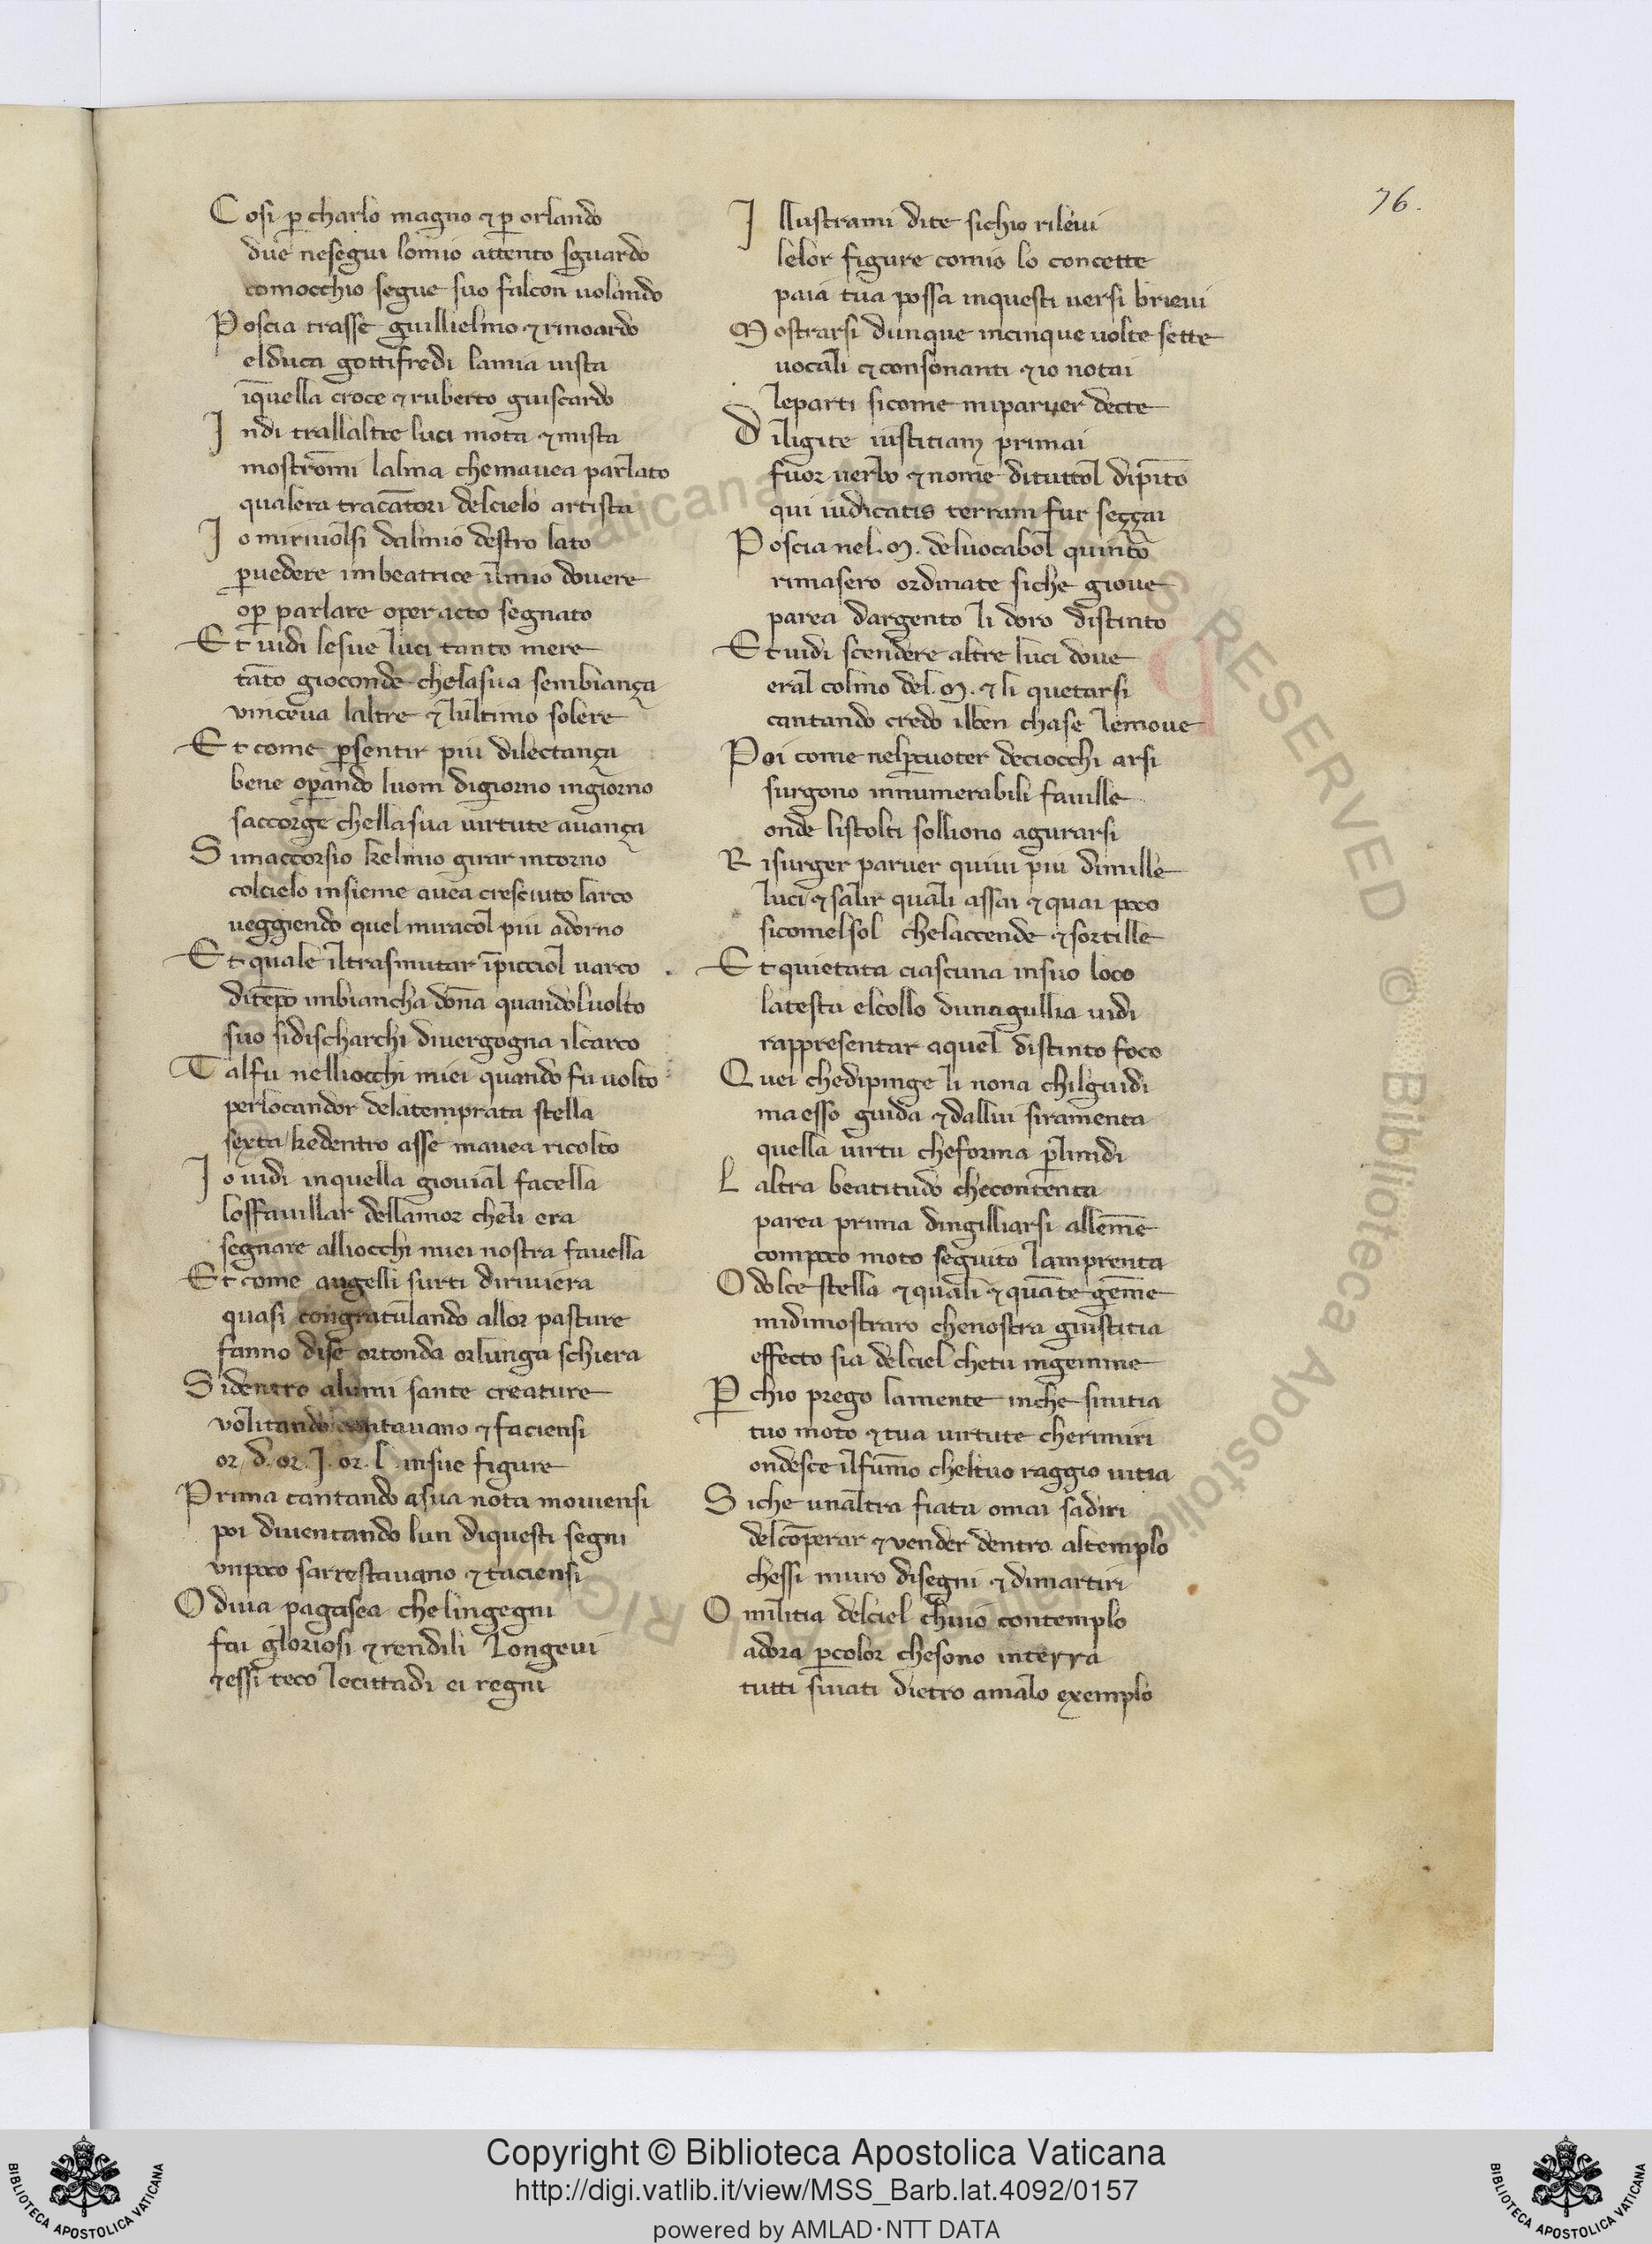 76.
Cosi ꝑ charlo magno ⁊ ꝑ orlando
due nesegui lomio attento sguardo
comocchio segue suo falcon uolando
Poscia trasse guillielmo ⁊ rinoardo
elduca gottifredi lamia uista
īquella croce ⁊ ruberto guiscardo
Indi trallaltre luci mota ⁊ mista
mostrōmi lalma chemauea parlato
qualera tracātori delcielo artista
Io miriuolsi dalmio destro lato
ꝑuedere imbeatrice ilmio douere
oꝑ parlare oper acto segnato
Et uidi lesue luci tanto mere
tāto gioconde chelasua sembiança
vinceua laltre ⁊ lultimo solere
Et come ꝑsentir piu dilectança
bene oꝑando luom digiorno ingiorno
saccorge chellasua uirtute auança
Simaccorsio kelmio girar intorno
colcielo insieme auea cresciuto larco
ueggiendo quel miracol piu adorno
Et quale iltrasmutar īpicciol uarco
ditēpo imbiancha dōna quandoluolto
suo sidischarchi diuergogna ilcarco
Talfu nelliocchi miei quando fu uolto
perlocandor delatemprata stella
sexta / kedentro asse mauea ricolto
Io uidi inquella giouial facella
losfauillar dellamor cheli era
segnare alliocchi miei nostra fauella
Et come augelli surti diriuiera
quasi congratulando allor pasture
fanno dise ortonda orlunga schiera
Sidentro alumi sante creature
volitando cantauano ⁊ faciensi
or .d. or .J. or .l. insue figure
Prima cantando asua nota mouiensi
poi diuentando lun diquesti segni
vnpoco sarrestauano ⁊ taciensi
Odiua pagasea chelingegni
fai gloriosi ⁊ rendili longeui
⁊essi teco lecittadi ei regni
Illustrami dite sichio rileui
lelor figure comio lo concette
paia tua possa inquesti uersi brieui
Mostrarsi dunque incinque uolte sette
uocali ⁊ consonanti ⁊ io notai
leparti sicome miparuer decte
Diligite iustitiam primai
fuor uerbo ⁊ nome dituttol dipīto
qui iudicatis terram fur seççai
Poscia nel .m. deluocabol quinto
rimasero ordinate siche gioue
parea dargento li doro distinto
Et uidi scendere altre luci doue
eral colmo del .m. ⁊ li quetarsi
cantando credo ilben chase lemoue
Poi come nelꝑcuoter deciocchi arsi
surgono innumerabili fauille
onde listolti solliono agurarsi
Risurger paruer quiui piu dimille
luci ⁊ salir quali assai ⁊ quai poco
sicomelsol chelaccende ⁊ sortille
Et quietata ciascuna insuo loco
latesta elcollo dunagullia uidi
rappresentar aquel distinto foco
Quei chedipinge li nona chilguidi
maesso guida ⁊ dallui siramenta
quella uirtu cheforma ꝑlinidi
Laltra beatitudo checontenta
parea prima dingilliarsi allēme
compoco moto seguito lamprenta
Odolce stella ⁊ quali ⁊ quāte gēme
midimostraro chenostra giustitia
effecto sia delciel chetu ingemme
Ꝑchio prego lamente inche sinitia
tuo moto ⁊ tua uirtute cherimiri
ondesce ilfūmo cheltuo raggio uitia
Siche unaltra fiata omai sadiri
delcōperar ⁊ vender dentro altemplo
chessi muro disegni ⁊ dimartiri
Omilitia delciel chuiō contemplo
adora ꝑcolor chesono interra
tutti suiati dietro amalo exemplo
Copyright © Biblioteca Apostolica Vaticana
http://digi.vatlib.it/view/MSS_Barb.lat.4092/0157
powered by AMLAD·NTT DATA
BIBLIOTECA APOSTOLICA VATICANA
BIBLIOTECA APOSTOLICA VATICANA